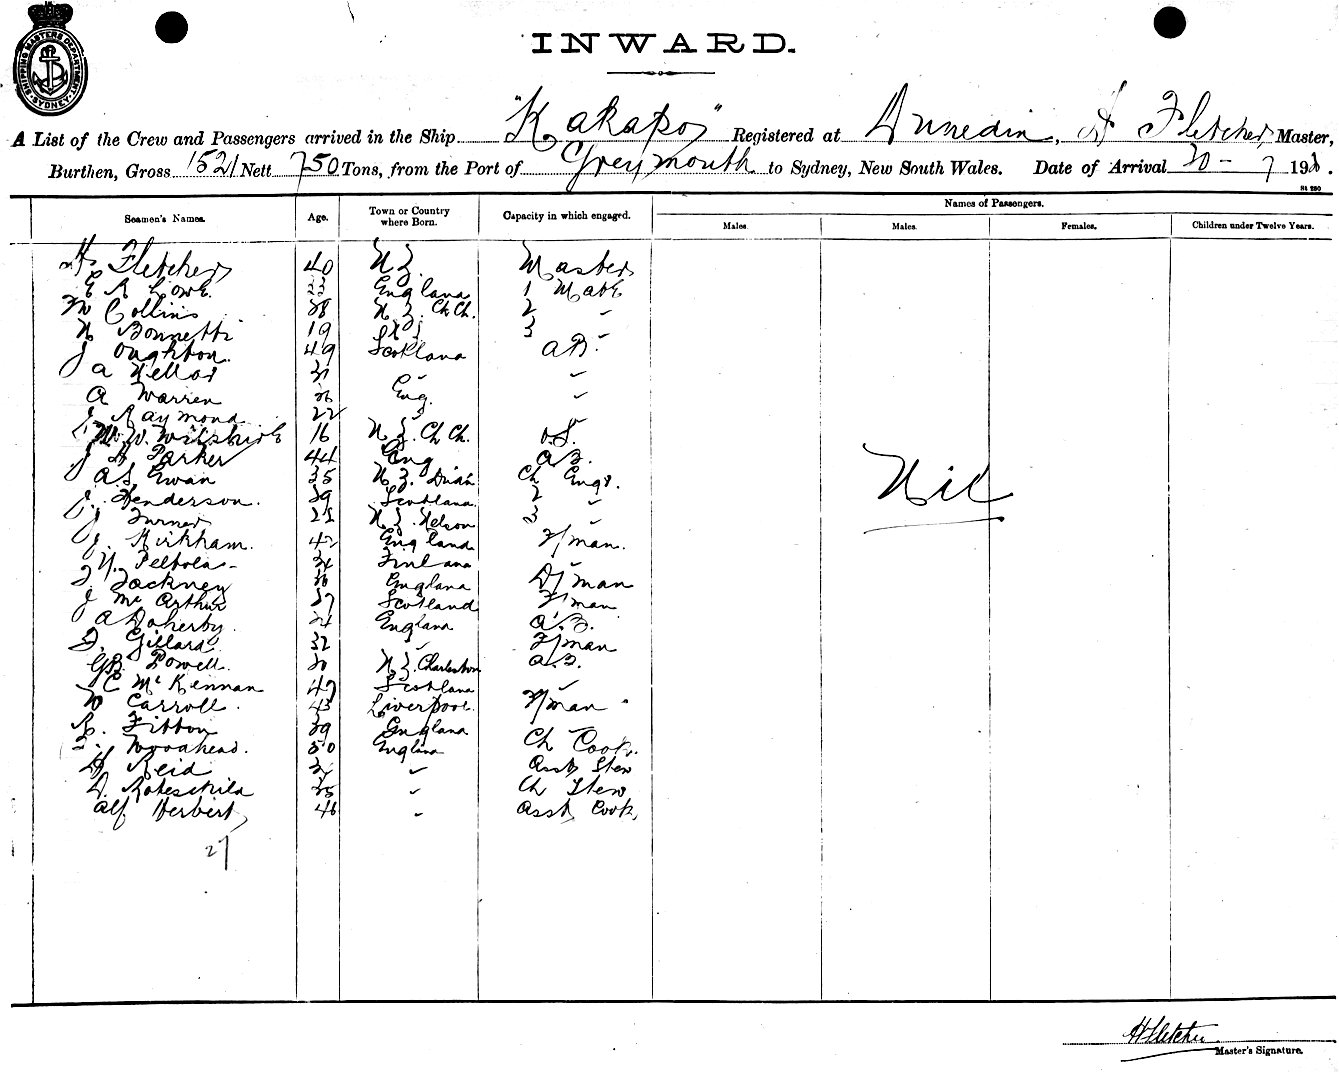 SHIPPING MASTERS DEPARTMENT SYDNEY
INWARD.
A List of the Crew and Passengers arrived in the Ship "Kakapo" Registered at Dunedin, H Fletcher, Master,
Burthen, Gross 1521 Nett 750 Tons, from the Port of Greymouth to Sydney, New South Wales. Date of Arrival 30 - 7 19
St 280
Seamen's Names. Age. Town or Country where Born. Capacity in which engaged. Names of Passengers.
Males. Males. Females. Children under Twelve Years.
H Fletcher 40 N Z. Master
E A Lowe. 23 England 1 Mate
Collins 28 N Z. Ch Ch. 2 "
N Bonnetti 19 3 "
J Oughton. 49 Scotland A B.
A Mellor " "
A Warren 26 Eng. "
J. Raymond 22
W. Wilshire 16 N Z. Ch Ch. O.S.
J H Parker 44 Eng A B.
A S. Ewan 35 N Z. Ch Engr.
J. Henderson. 39 Scotland 2 "
J Turner N Z. Nelson 3 "
J. Kirkham. 42 England F/man.
N. Peltola 34 Finland "
Tackney England D/man
J McArthur 27 Scotland F/man
A Doherby. 24 England A.B.
Gillard. 32 " F/man
G B. Powell. N Z. Charleston A.B.
C McKennan 47 Scotland "
W Carroll. 43 Liverpool. F/man
R. Fitton 39 England "
T. Woodhead. 50 England Ch Cook.
Reid " Asst Stew
D. Roteschild 35 " Ch Stew
Alf. Herbert, 46 " Asst, Cook,
27
Nil
H Fletcher
Master's Signature.